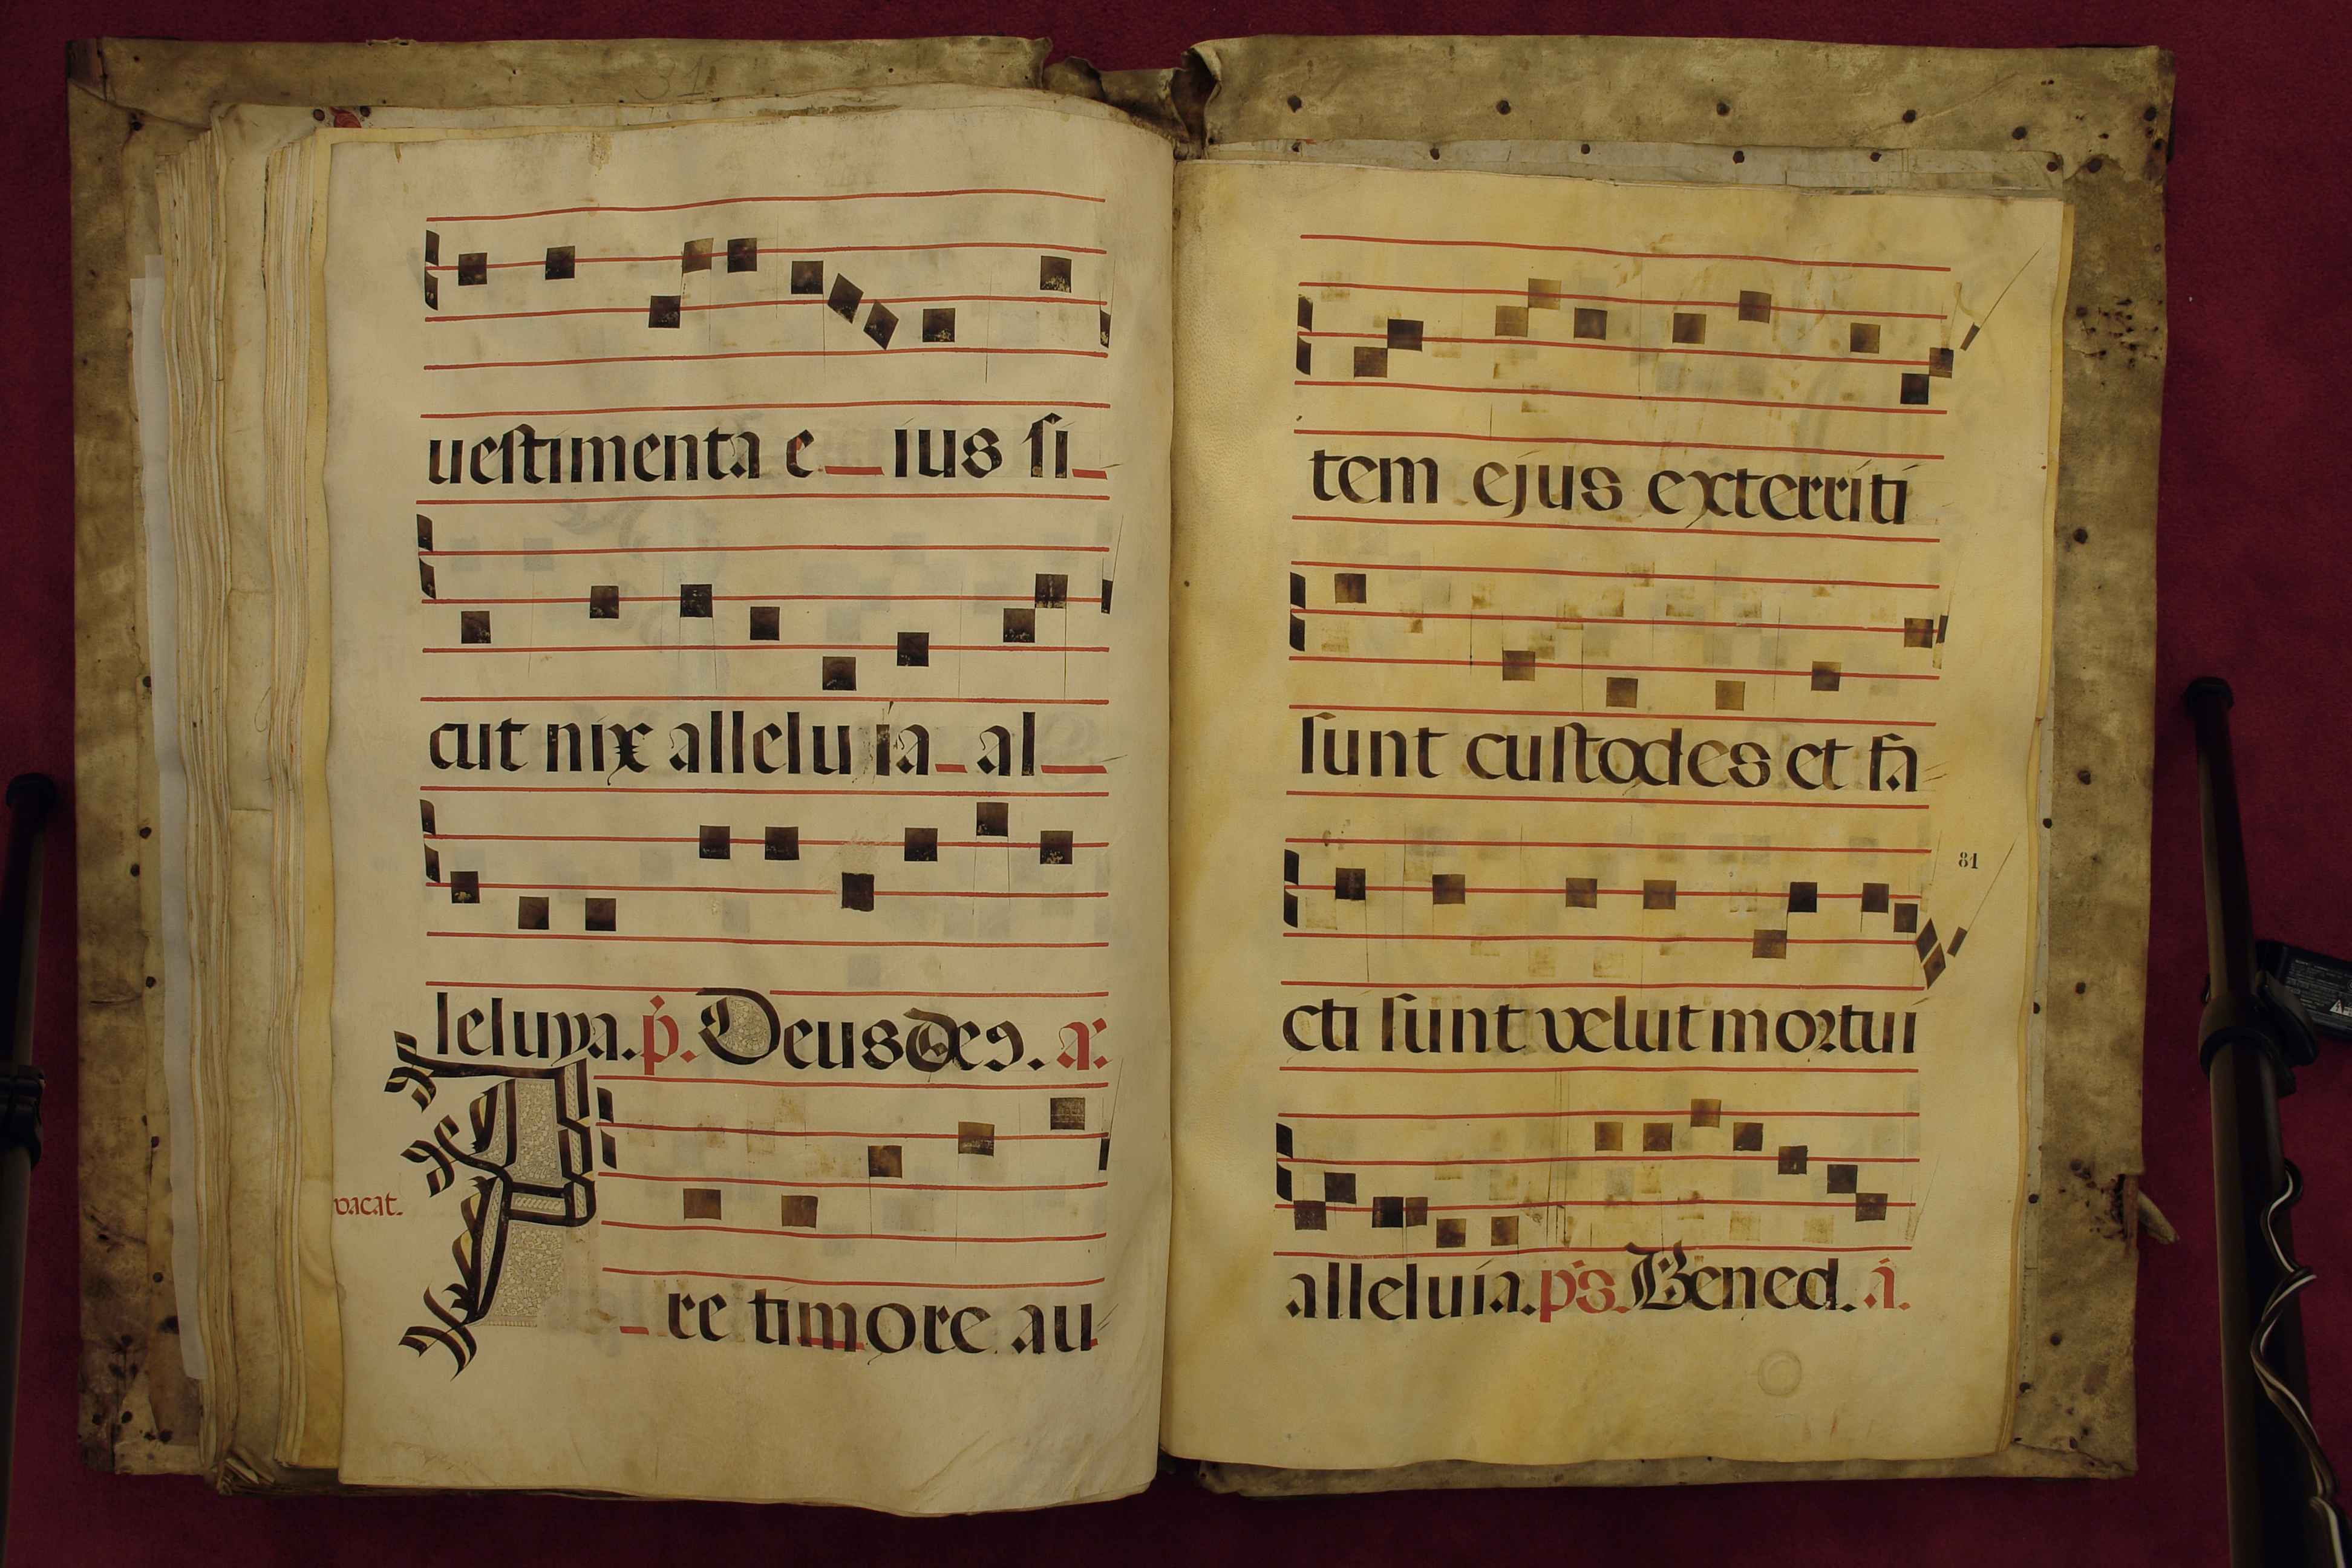 31
uestimenta e ius si
cut nix alleluia al
leluya. p. Deus Deꝰ. a.
vacat.
Pre timore au
tem ejus exterriti
sunt custodes et fa
81
cti sunt velut mortui
alleluia. ps. Bened. a.